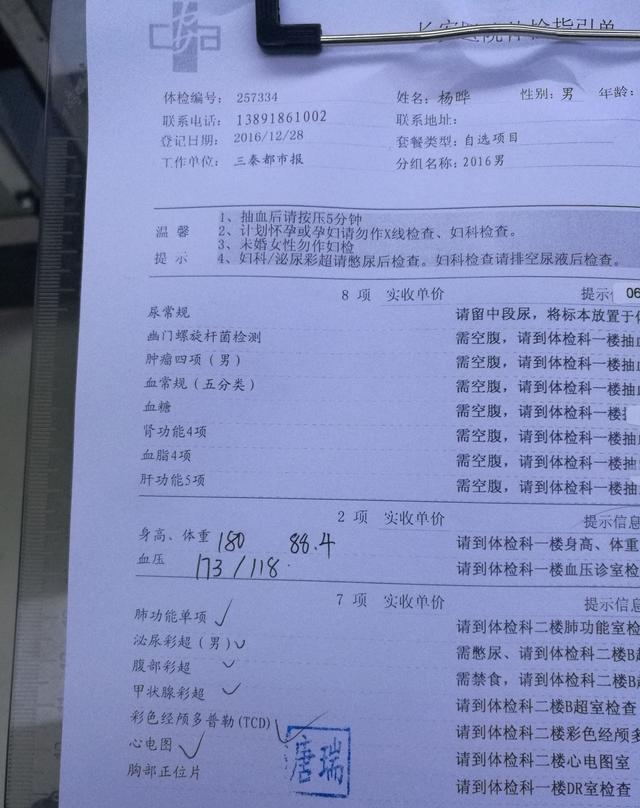 长安医院体检指引单
体检编号: 257334 姓名: 杨晔 性别: 男 年龄:
联系电话: 13891861002 联系地址:
登记日期: 2016/12/28 套餐类型: 自选项目
工作单位: 三秦都市报 分组名称: 2016男
温馨提示
1、抽血后请按压5分钟
2、计划怀孕或孕妇请勿作X线检查、妇科检查。
3、未婚女性勿作妇检
4、妇科/泌尿彩超请憋尿后检查。妇科检查请排空尿液后检查。
8 项 实收单价 提示信 06
尿常规 请留中段尿，将标本放置于
幽门螺旋杆菌检测 需空腹，请到体检科一楼抽血
肿瘤四项（男） 需空腹，请到体检科一楼抽血
血常规（五分类） 需空腹，请到体检科一楼抽血
血糖 需空腹，请到体检科一楼
肾功能4项 需空腹，请到体检科一楼抽
血脂4项 需空腹，请到体检科一楼抽
肝功能5项 需空腹，请到体检科一楼抽
2 项 实收单价 提示信息
身高、体重 180 88.4 请到体检科一楼身高、体重
血压 173/118 请到体检科一楼血压诊室检
7 项 实收单价 提示信息
肺功能单项 请到体检科二楼肺功能室检
泌尿彩超（男） 需憋尿、请到体检科二楼B超
腹部彩超 需禁食，请到体检科二楼B超
甲状腺彩超 请到体检科二楼B超室检查
彩色经颅多普勒(TCD) 请到体检科二楼彩色经颅多
心电图 请到体检科二楼心电图室
胸部正位片 请到体检科一楼DR室检查
唐瑞